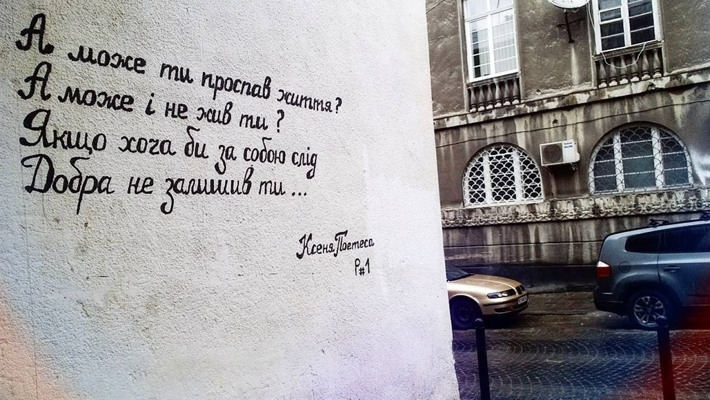 А може ти проспав життя?
А може і не жив ти?
Якщо хоча би за собою слід
Добра не залишив ти...
Ксеня Поетеса
Р#1